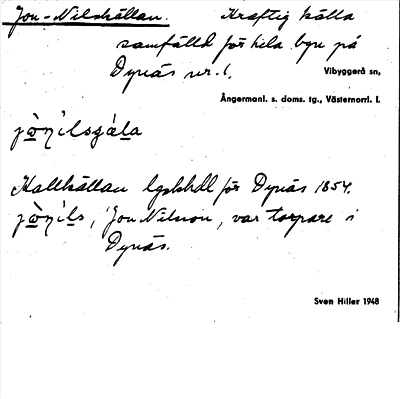 Jon-Nilskällan. Kraftig källa
samfälld för hela byn på
Dynäs nr 1.
Vibyggerå sn,
Ångermanl. s. doms. tg., Västernorrl. l.
Kallkällan lgskhdl för Dynäs 1854.
Jon Nilsson, var torpare i
Dynäs.
Sven Hiller 1948